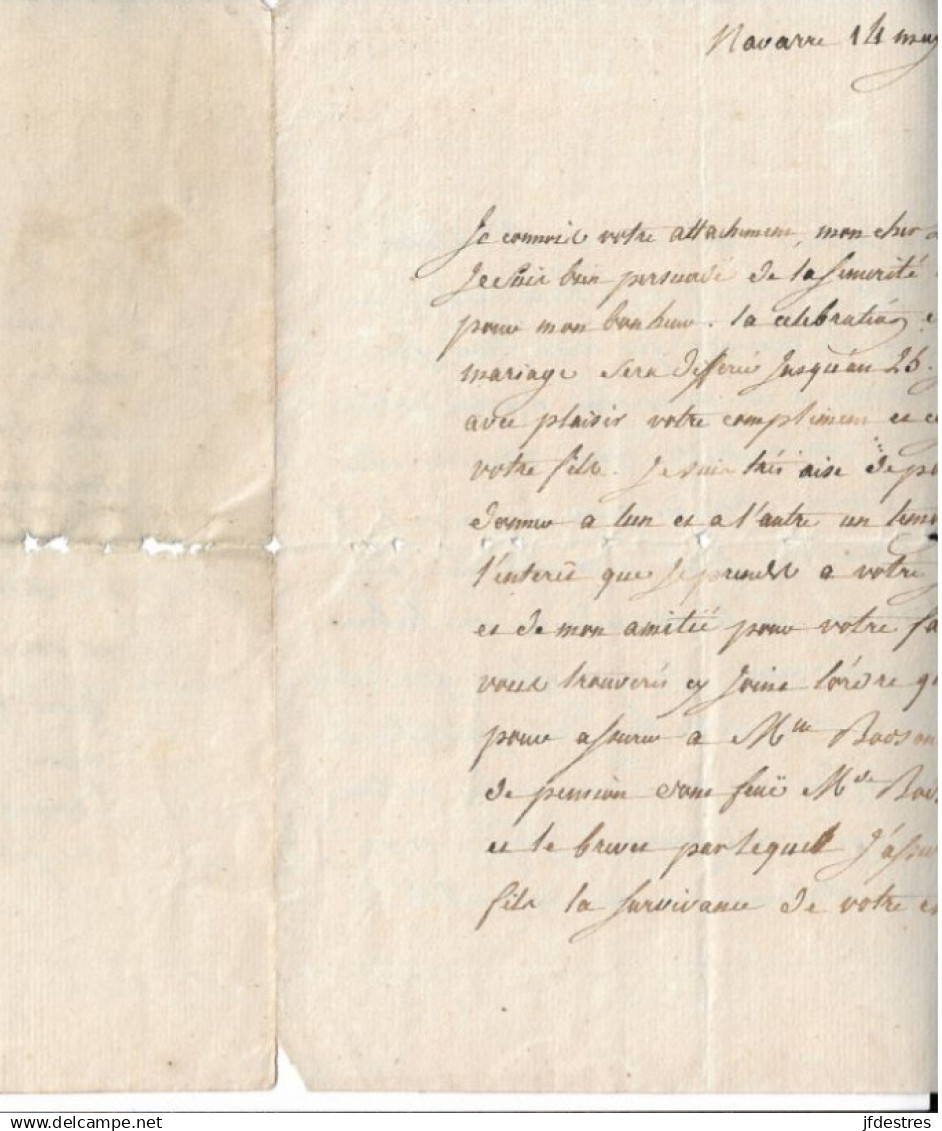 Navarre 14 may
Je connois votre attachement, mon cher
Je suis bien persuadé de la sincerité
pour mon bonheur. la celebration
mariage sera differée Jusqu'au 25.
avec plaisir votre compliment et c
votre fils. Je suis trés aise de po
donner a lun et a l'autre un temo
l'interêt que Je prends a votre
et de mon amitié pour votre fa
vous trouverés cy Joint l'ordre q
pour assurer a Mlle
de pension dont feuë Mde
et le brevet par lequel J'assu
fils la survivance de votre
delcampe.net
jfdestres